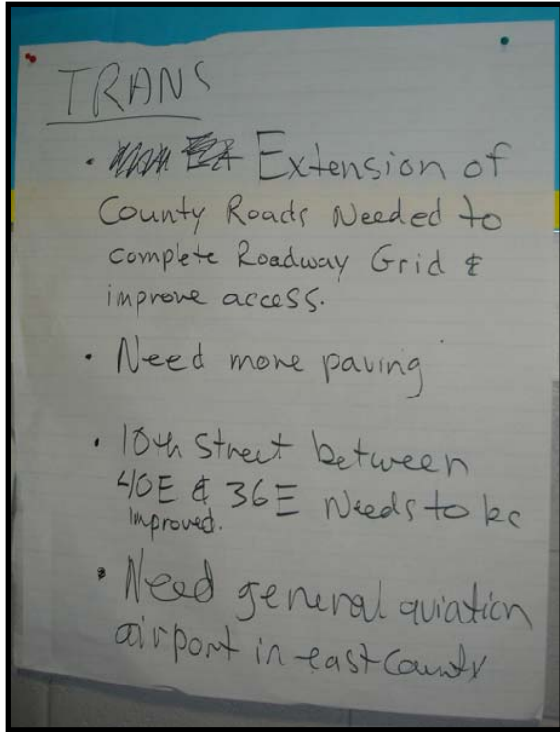 TRANS
• Extension of
County Roads Needed to
complete Roadway Grid &
improve access.
• Need more paving
• 10th Street between
40E & 36E Needs to be
Improved.
• Need general aviation
airport in east County